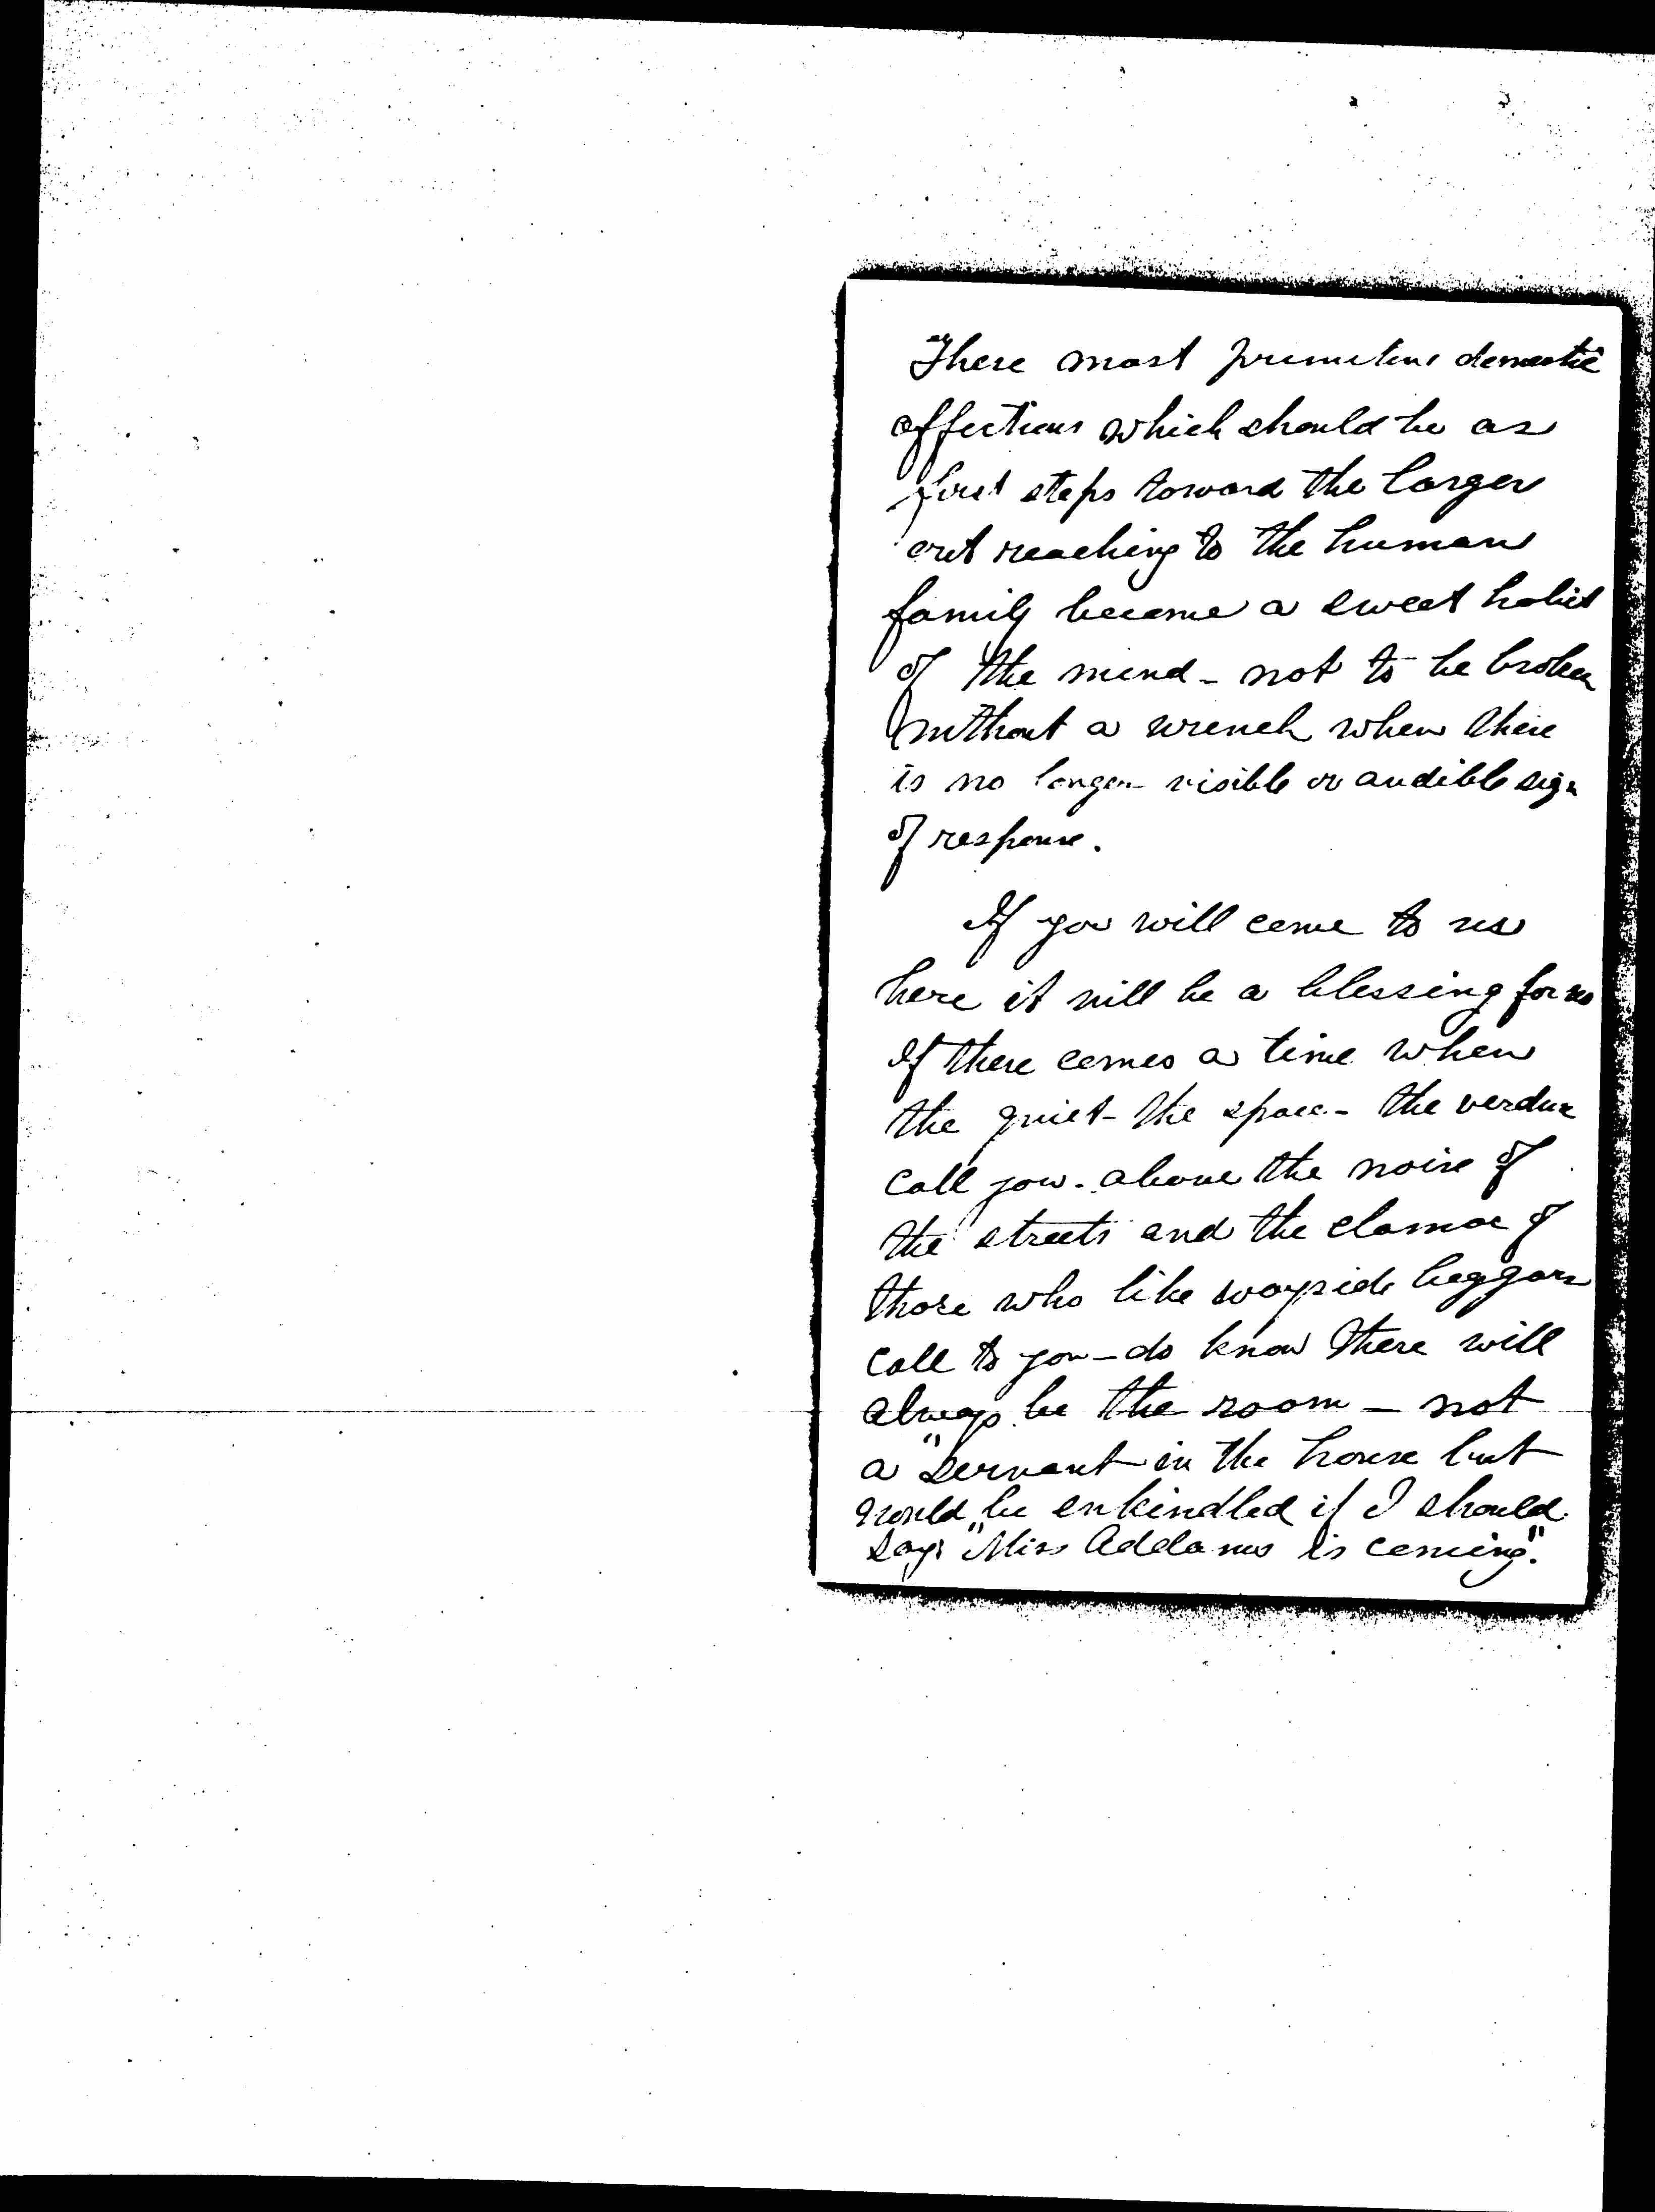 These most primitive domestic
affections which should be as
first steps toward the larger
out reaching to the human
family become a sweet habit
of the mind - not to be broken
without a wrench when there
is no longer visible or audible sign
of response.
If you will come to us
here it will be a blessing for us
If there comes a time when
the quiet - the space - the verdure
call you - above the noise of
the streets and the clamor of
those who like wayside beggars
call to you - do know there will
always be the room - not
a "servant in the house but
would be enkindled if I should
say "Miss Addams is coming".